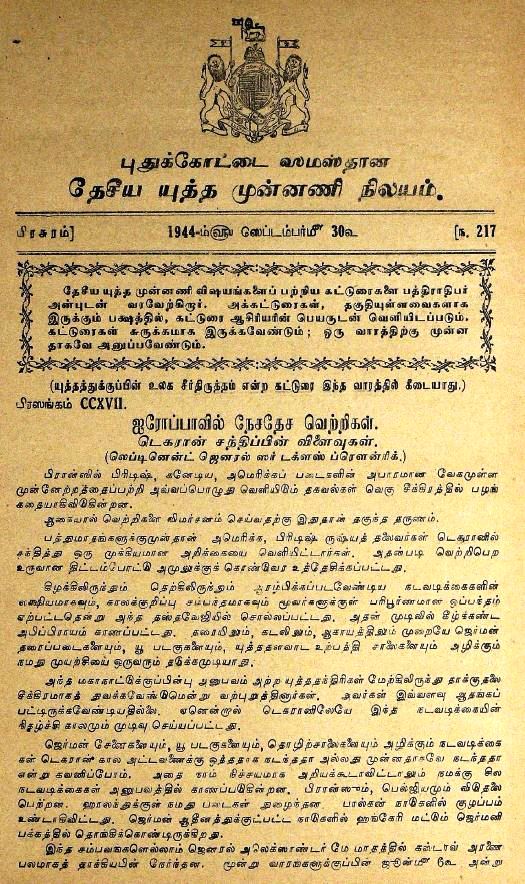 புதுக்கோட்டை ஸமஸ்தான
தேசீய யுத்த முன்னணி நிலயம்.
பிரசுரம்] 1944-ம்௵ ஸெப்டம்பர்௴ 30௳ [ந. 217
தேசீய யுத்த முன்னணி விஷயங்களைப் பற்றிய கட்டுரைகளை பத்திராதிபர்
அன்புடன் வரவேற்கிறார். அக்கட்டுரைகள், தகுதியுள்ளவைகளாக
இருக்கும் பக்ஷத்தில், கட்டுரை ஆசிரியரின் பெயருடன் வெளியிடப்படும்.
கட்டுரைகள் சுருக்கமாக இருக்கவேண்டும்; ஒரு வாரத்திற்கு முன்ன
தாகவே அனுப்பவேண்டும்.
(யுத்தத்துக்குப்பின் உலக சீர்திருத்தம் என்ற கட்டுரை இந்த வாரத்தில் கிடையாது.)
பிரஸங்கம் CCXVII.
ஐரோப்பாவில் நேசதேச வெற்றிகள்.
டெகரான் சந்திப்பின் விளைவுகள்.
(லெப்டினென்ட் ஜெனரல் ஸர் டக்ளஸ் ப்ரௌன்ரிக்.)
பிரான்ஸில் பிரிடிஷ், கனேடிய, அமெரிக்கப் படைகளின் அபாரமான வேகமுள்ள
முன்னேற்றத்தைப்பற்றி அவ்வப்பொழுது வெளியிடும் தகவல்கள் வெகு சீக்கிரத்தில் பழங்
கதையாகிவிடுகின்றன.
ஆகையால் வெற்றிகளை விமர்சனம் செய்வதற்கு இதுதான் தகுந்த தருணம்.
பத்துமாதங்களுக்குமுன்தான் அமெரிக்க, பிரிடிஷ் ருஷ்யத் தலைவர்கள் டெகரானில்
சந்தித்து ஒரு முக்கியமான அறிக்கையை வெளியிட்டார்கள். அதன்படி வெற்றிபெற
உருவான திட்டம்போட்டு அமுலுக்குக் கொண்டுவர உத்தேசிக்கப்பட்டது.
கிழக்கிலிருந்தும் தெற்கிலிருந்தும் ஆரம்பிக்கப்படவேண்டிய நடவடிக்கைகளின்
லக்ஷியமாகவும், காலக்குறிப்பு சம்பந்தமாகவும் மூவர்களுக்குள் பரிபூர்ணமான ஒப்பந்தம்
ஏற்பட்டதென்று அந்த தஸ்தவேஜியில் சொல்லப்பட்டது. அதன் முடிவில் கீழ்க்கண்ட
அபிப்பிராயம் காணப்பட்டது. தரையிலும், கடலிலும், ஆகாயத்திலும் முறையே ஜெர்மன்
தரைப்படைகளையும், யூ படகுகளையும், யுத்ததளவாட உற்பத்தி சாலைகளையும் அழிக்கும்
நமது முயற்சியை ஒருவரும் தடுக்கமுடியாது.
அந்த மகாநாட்டுக்குப்பின்பு அனுபவம் அற்ற யுத்ததந்திரிகள் மேற்கிலிருந்து தாக்குதலை
சீக்கிரமாகத் துவக்கவேண்டுமென்று வற்புறுத்தினார்கள். அவர்கள் இவ்வளவு ஆதங்கப்
பட்டிருக்கவேண்டியதில்லை. ஏனென்றால் டெகரானிலேயே இந்த நடவடிக்கையின்
நிகழ்ச்சி காலமும் முடிவு செய்யப்பட்டது.
ஜெர்மன் சேனைகளையும், யூ படகுகளையும், தொழிற்சாலைகளையும் அழிக்கும் நடவடிக்கை
கள் டெகரான் கால அட்டவணைக்கு ஒத்ததாக நடந்ததா அல்லது முன்னதாகவே நடந்ததா
என்று கவனிப்போம். அதை நாம் நிச்சயமாக அறியக்கூடாவிட்டாலும் நமக்கு சில
நடவடிக்கைகள் அனுபலத்தில் காணப்படுகின்றன. பிரான்ஸும், பெல்ஜியமும் விடுதலை
பெற்றன. ஹாலந்துக்குள் நமது படைகள் நுழைந்தன. பால்கன் நாடுகளில் குழப்பம்
உண்டாகிவிட்டது. ஜெர்மன் ஆதீனத்துக்குட்பட்ட நாடுகளில் ஹங்கேரி மட்டும் ஜெர்மனி
பக்கத்தில் தொங்கிக்கொண்டிருக்கிறது.
இந்த சம்பவங்களெல்லாம் ஜெனரல் அலெக்ஸாண்டர் மே மாதத்தில் கஸ்டாவ் அரணை
பலமாகத் தாக்கியபின் நேர்ந்தன. மூன்று வாரங்களுக்குப்பின் ஜூன்௴ 6௳ அன்று